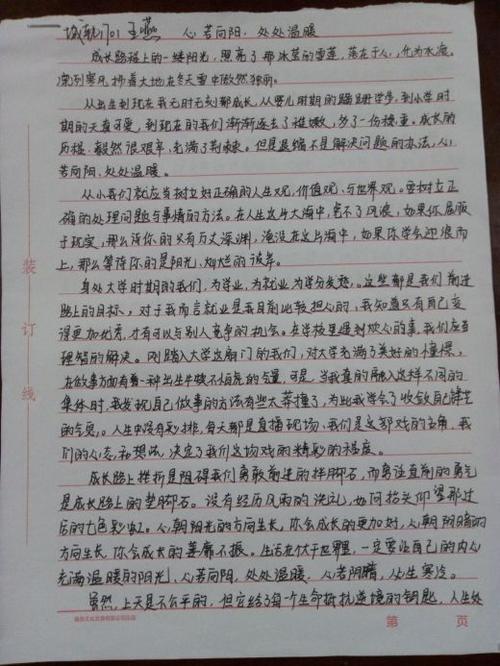 城轨1701 王燕 心若向阳，处处温暖
成长路程上的一缕阳光，照亮了那冰莹的雪莲，落在手心，化为水滴。
凛冽寒风 抄着大地在冬天雪中傲然独丽。
从出生到现在我无时无刻都成长，从婴儿时期的蹒跚学步，到小学时
期的天真可爱，到现在的我们渐渐褪去了稚嫩，多了一份稳重。成长的
历程，毅然很艰辛，充满了荆棘。但是退缩不是解决问题的办法，心
若向阳，处处温暖。
从小我们就应当树立好正确的人生观，价值观，与世界观。要树立正
确的处理问题与事情的方法。在人生这片大海中，免不了风浪，如果你屈服
于现实，那么待你的只有万丈深渊，淹没在这片海中，如果你学会迎浪而
上，那么等待你的是阳光，灿烂的彼岸。
身处大学时期的我们，为学业，为就业，为学分发愁。这些都是我们前进
路上的目标，对于我而言就业是我目前比较担心的，我知道只有自己变
得更加优秀，才有可以与别人竞争的机会。在学校里遇到烦心的事，我们应当
理智的解决。刚踏入大学这扇门的我们，对大学充满了美好的憧憬，
在做事方面有着一种出生牛犊不怕虎的气量，可是，当我真的融入这样不同的
集体时，我发现自己做事的方法有些太莽撞了，为此我学会了收敛自己
的气焰。人生中没有彩排，每天都是直播现场，我们是这部戏的主角，我
们的心态和想法，决定了我们这场戏的精彩的程度。
成长路上挫折是阻碍我们勇敢前进的拌脚石，而勇往直前的勇气
是成长路上的垫脚石。没有经历风雨的洗礼，如何抬头仰望那过
后的七色彩虹。心朝阳光的方向生长，你会成长的更加好，心朝阴暗的
方向生长，你会成长的萎靡不振。生活在伏于世界里，一定要让自己的内心
充满温暖的阳光，心若向阳，处处温暖，心若阴暗，处生寒冷。
虽然，上天是不公平的，但它给了每一个生命抵抗逆境的钥匙，人生处
装订线
第 页